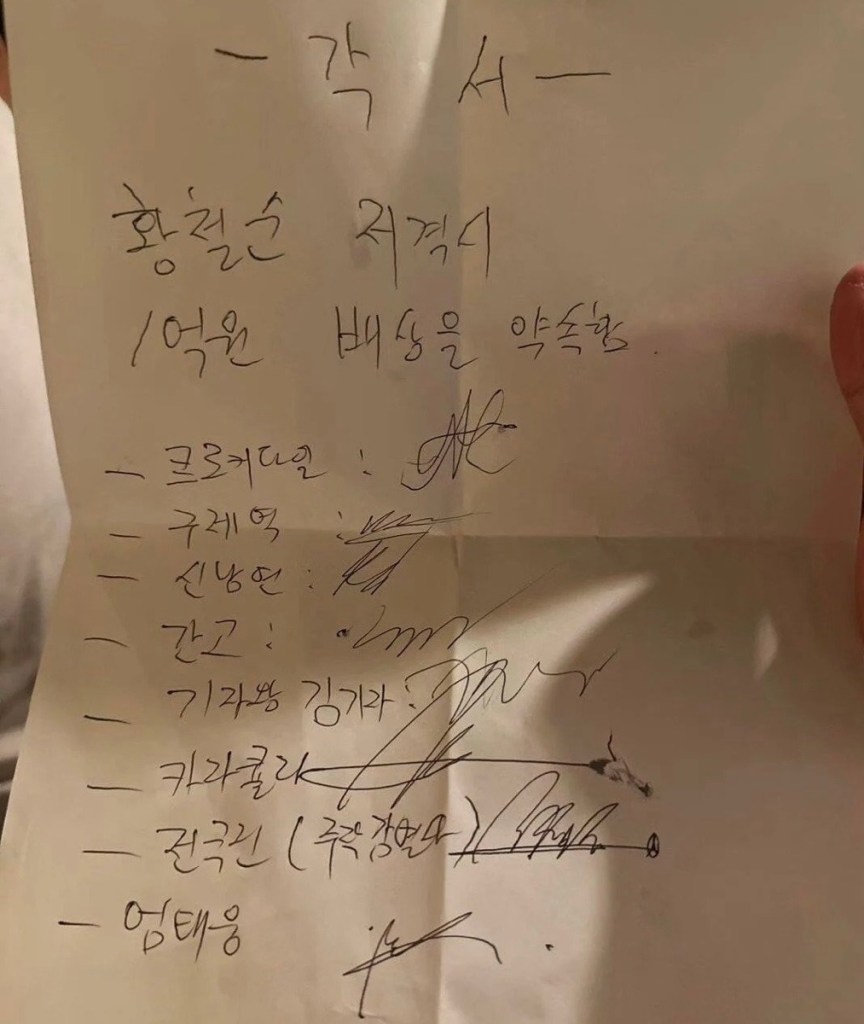 - 각 서 -
황철순 저격시
1억원 배상을 약속함.
- 크로커다일 :
- 구제역 :
- 신남연 :
- 간고 :
- 기자왕 김기자 :
- 카라큘라
- 전국진 (주작감별사)
- 엄태웅